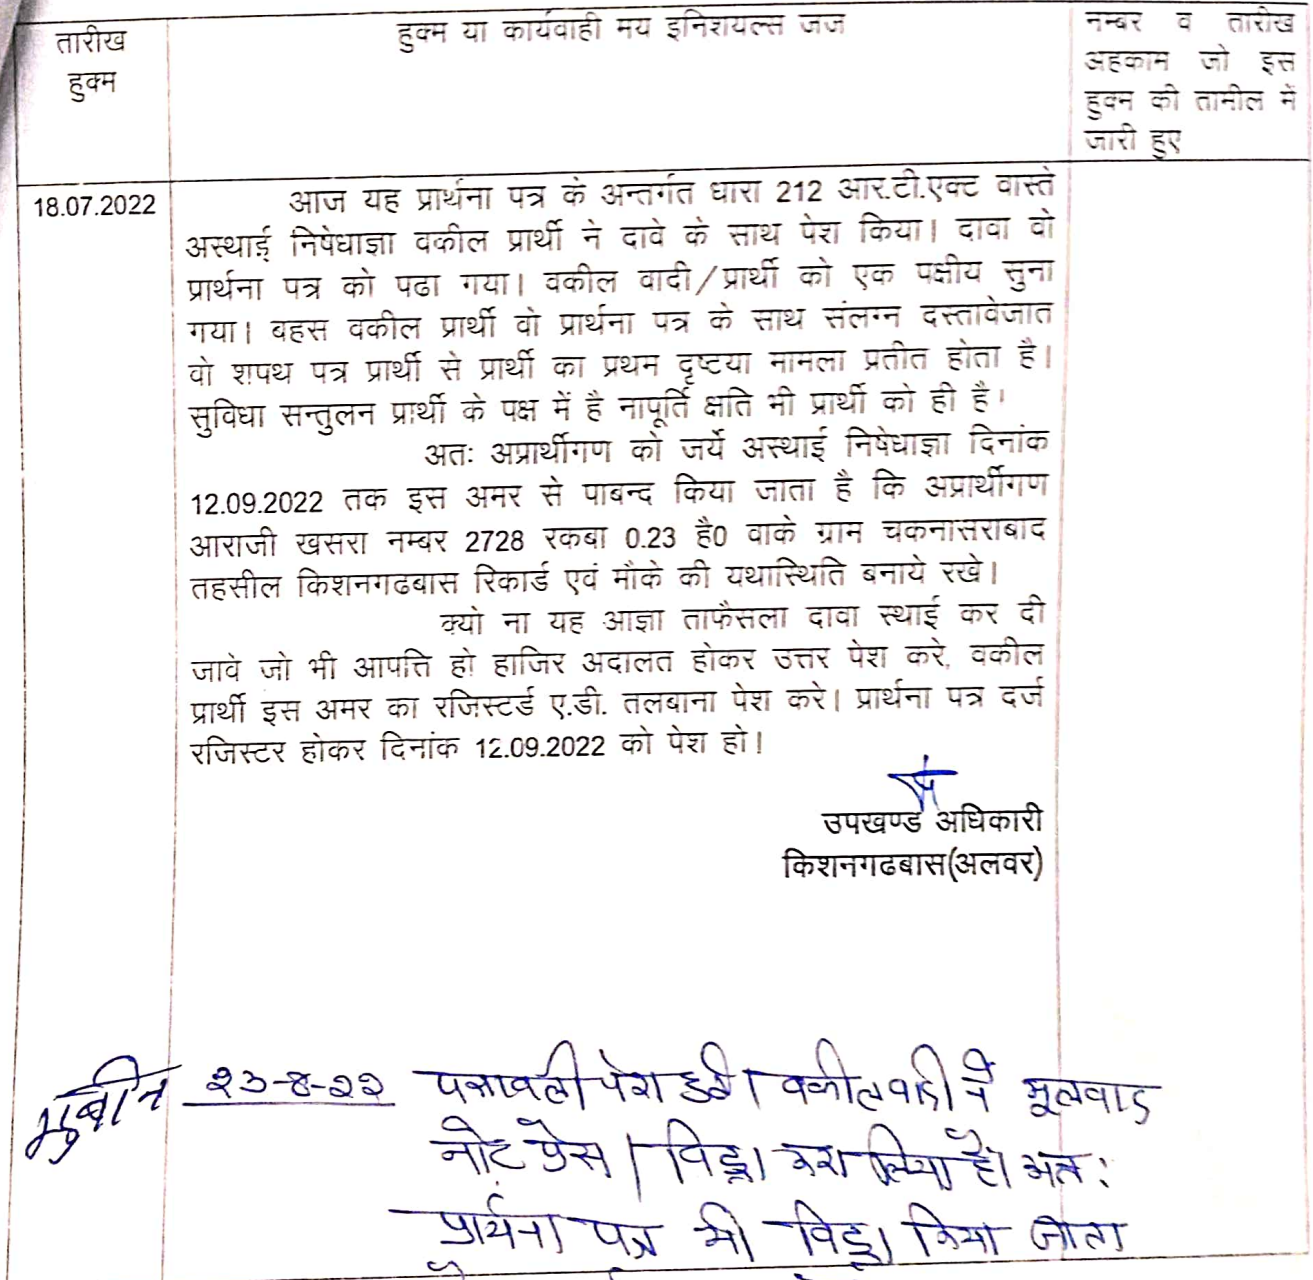 तारीख
हुक्म
हुक्म या कार्यवाही मय इनिशयल्स जज
नम्बर व तारीख
अहकाम जो इस
हुक्म की तामील में
जारी हुए
18.07.2022
आज यह प्रार्थना पत्र के अन्तर्गत धारा 212 आर.टी.एक्ट वास्ते
अस्थाई निषेधाज्ञा वकील प्रार्थी ने दावे के साथ पेश किया। दावा वो
प्रार्थना पत्र को पढा गया। वकील वादी/प्रार्थी को एक पक्षीय सुना
गया। वहस वकील प्रार्थी वो प्रार्थना पत्र के साथ संलग्न दस्तावेजात
वो शपथ पत्र प्रार्थी से प्रार्थी का प्रथम दृष्टया मामला प्रतीत होता है।
सुविधा सन्तुलन प्रार्थी के पक्ष में है नापूर्ति क्षति भी प्रार्थी को ही है।
अतः अप्रार्थीगण को जर्ये अस्थाई निषेधाज्ञा दिनांक
12.09.2022 तक इस अमर से पाबन्द किया जाता है कि अप्रार्थीगण
आराजी खसरा नम्बर 2728 रकबा 0.23 है0 वाके ग्राम चकनासराबाद
तहसील किशनगढबास रिकार्ड एवं मौके की यथास्थिति बनाये रखे।
क्यो ना यह आज्ञा ताफैसला दावा स्थाई कर दी
जावे जो भी आपत्ति हो हाजिर अदालत होकर उत्तर पेश करे, वकील
प्रार्थी इस अमर का रजिस्टर्ड ए.डी. तलबाना पेश करे। प्रार्थना पत्र दर्ज
रजिस्टर होकर दिनांक 12.09.2022 को पेश हो।
उपखण्ड अधिकारी
किशनगढबास(अलवर)
मुबीन २३-8-२२ पत्रावली पेश हुई। वकील वादी ने मूलवाद
नोट प्रेस / विड्रा करा लिया है। अतः
प्रार्थना पत्र भी विड्रा किया जाता